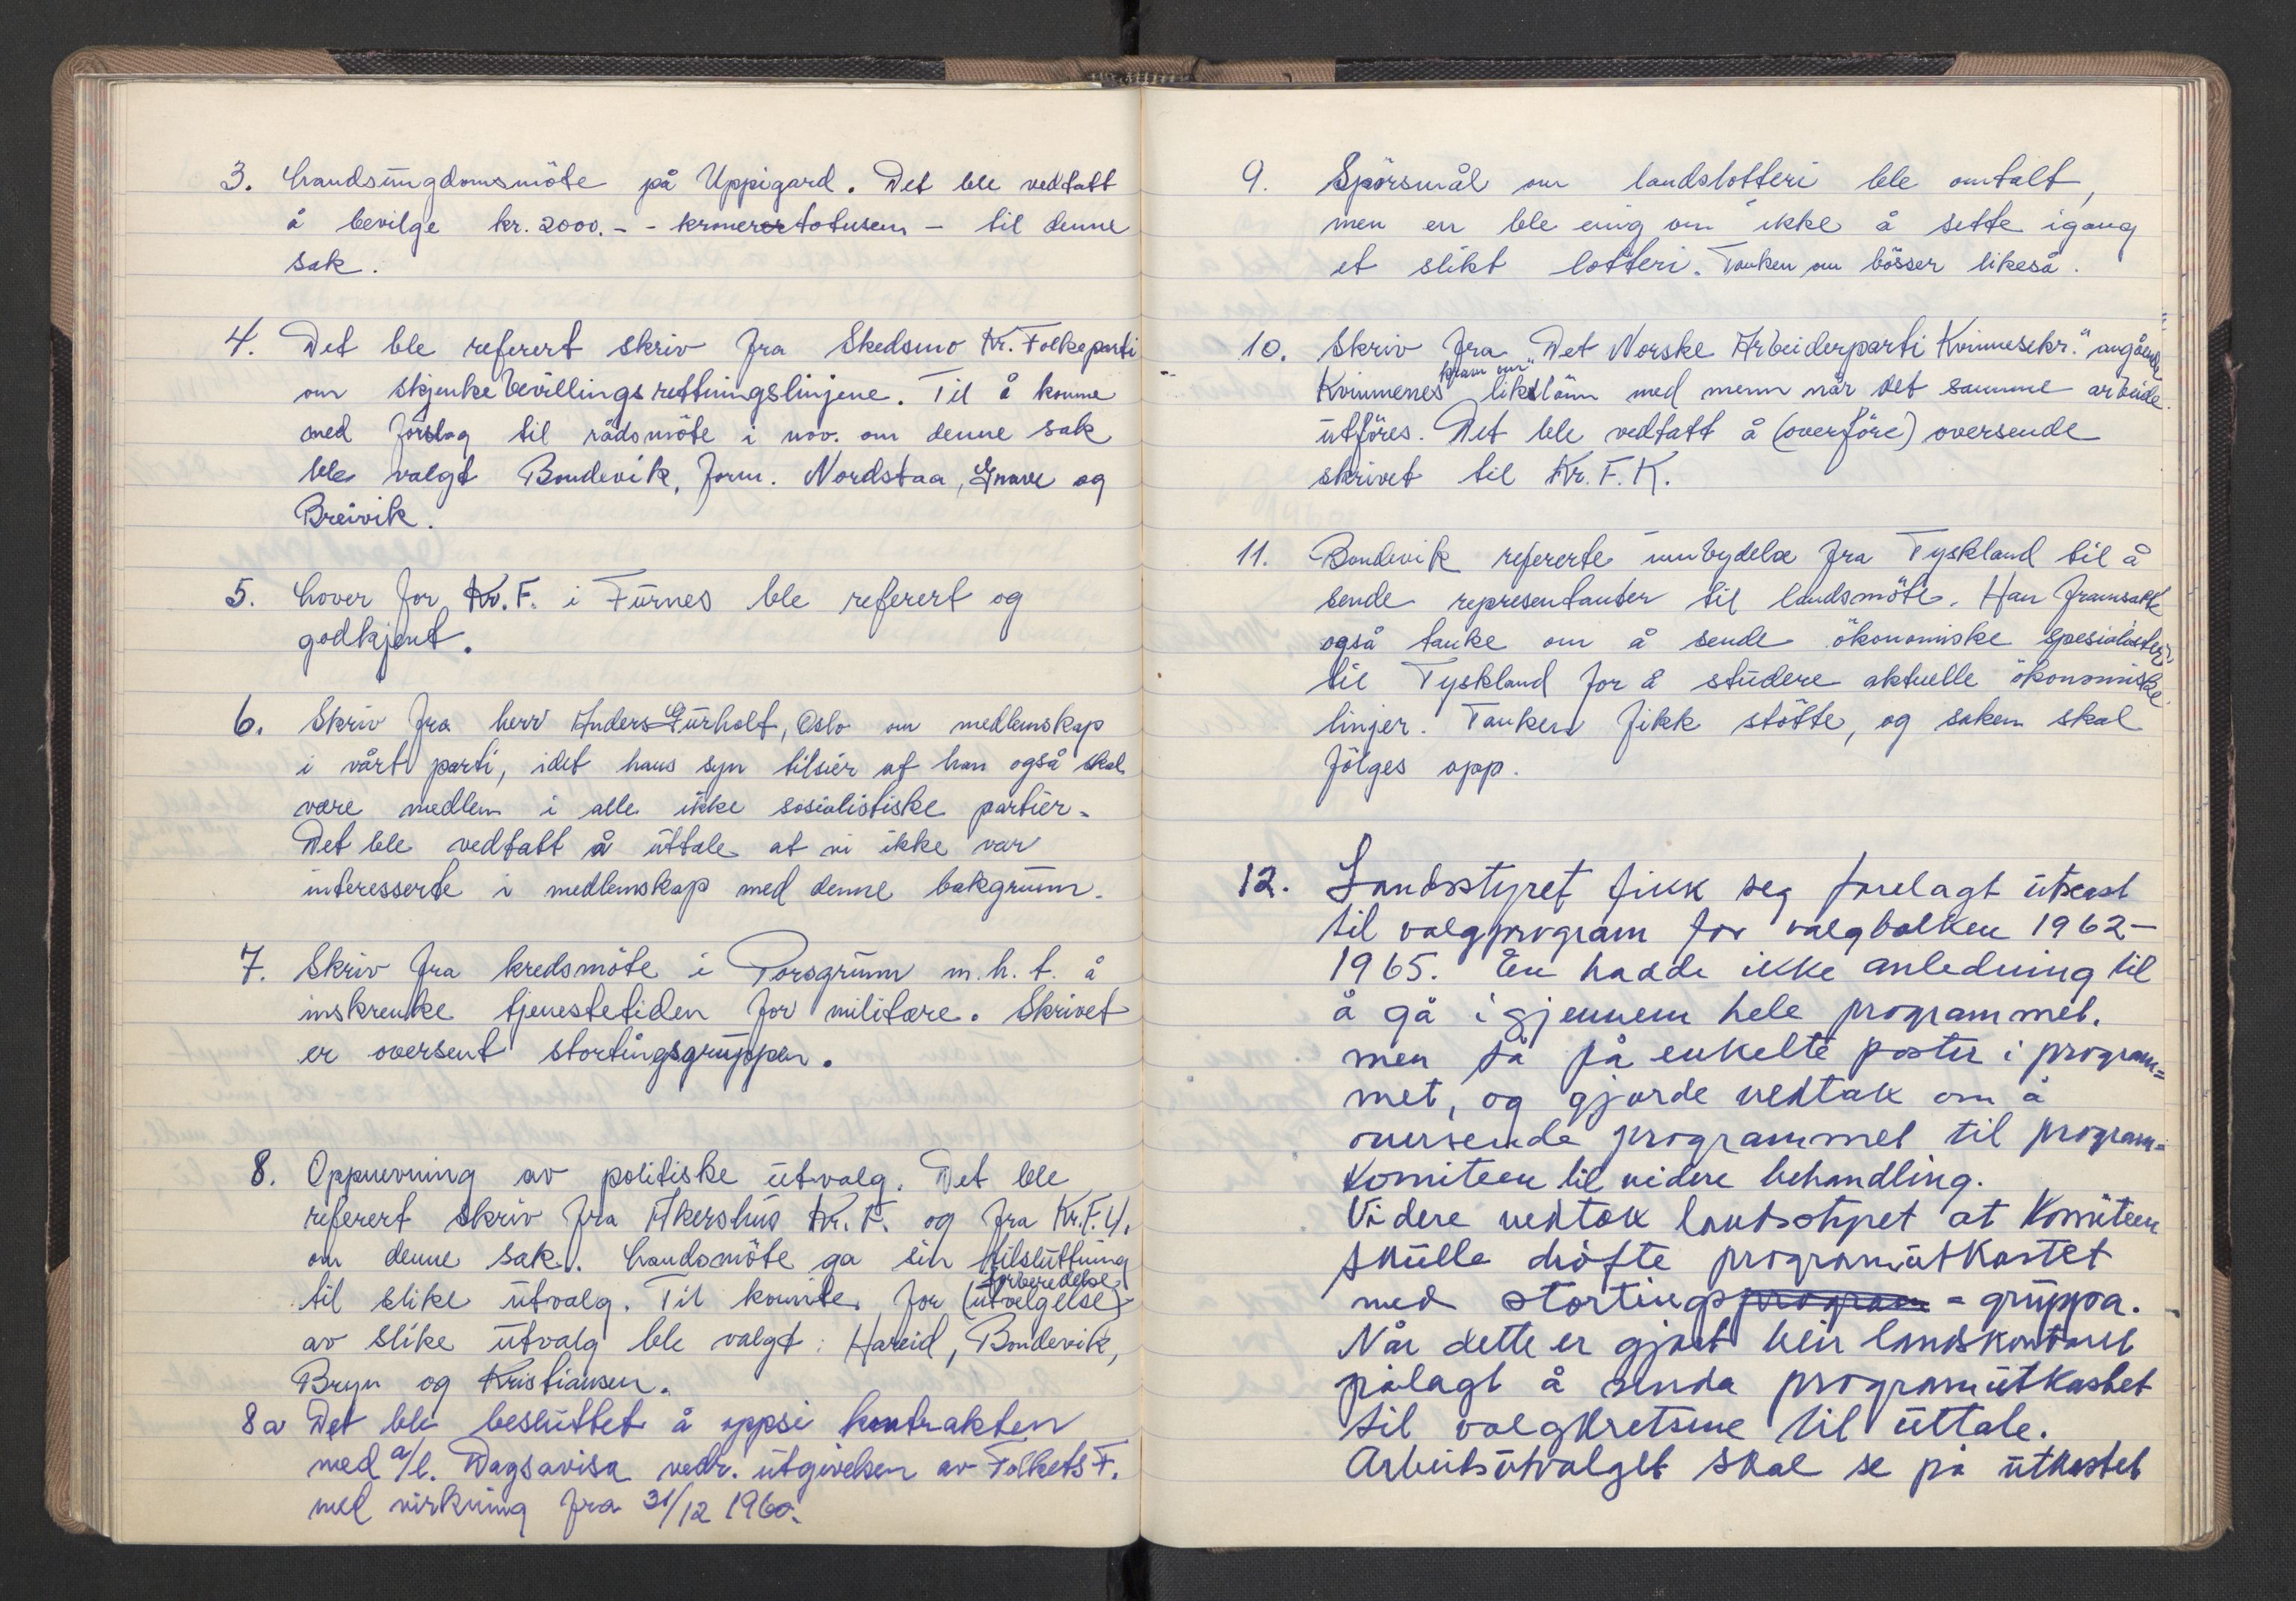 3. Landsungdomsmöte på Uppigard. Det ble vedtatt
å bevilge kr. 2000.- - kronerertotusen - til denne
sak.
4. Det ble referert skriv fra Skedsmo Kr. Folkeparti
om skjenkebevillingsrettningslinjene. Til å komme
med forslag til rådsmöte i nov. om denne sak
ble valgt Bondevik, form. Nordstaa, Gnave og
Breivik.
5. Lover for Kr.F. i Furnes ble referert og
godkjent.
6. Skriv fra herr Anders Gurholt, Oslo om medlemskap
i vårt parti, idet hans syn tilsier at han også skal
være medlem i alle ikke sosialistiske partier.
Det ble vedtatt å uttale at vi ikke var
interesserte i medlemskap med denne bakgrunn.
7. Skriv fra kredsmöte i Porsgrunn m.h.t. å
inskrenke tjenestetiden for militære. Skrivet
er oversent stortingsgruppen.
8. Oppnevning av politiske utvalg. Det ble
referert skriv fra Akershus Kr. F. og fra Kr.F.U.
om denne sak. Landsmöte ga sin tilsluttning
til slike utvalg. Til komite for (utvelgelse) forberedelse
av slike utvalg ble valgt: Hareid, Bondevik,
Bryn og Kristiansen.
8a Det ble besluttet å oppsi kontrakten
med a/l. Dagsavisa vedr. utgivelsen av Folkets F.
med virkning fra 31/12 1960.
9. Spörsmål om landslotteri ble omtalt,
men en ble enig om ikke å sette igang
et slikt lotteri. Tanken om bösser likeså.
10. Skriv fra "Det Norske Arbeiderparti Kvinnesekr." angående
Kvinnenes krav om liklönn med menn når det samme arbeide
utföres. Det ble vedtatt å (overföre) oversende
skrivet til Kr. F. K.
11. Bondevik refererte innbydelse fra Tyskland til å
sende representanter til landsmöte. Han framsatte
også tanke om å sende ökonomiske spesialister
til Tyskland for å studere aktuelle ökonomiske
linjer. Tanken fikk stötte, og saken skal
fölges opp.
12. Landsstyret fikk seg forelagt utkast
til valgprogram for valgbolken 1962-
1965. En hadde ikke anledning til
å gå igjennem hele programmet.
men så på enkelte poster i program=
met, og gjorde vedtak om å
oversende programmet til program=
komiteen til videre behandling.
Videre vedtok landsstyret at komiteen
skulle dröfte programutkastet
med stortingsprogram = gruppa.
Når dette er gjort blir landskontoret
pålagt å senda programutkastet
til valgkretsene til uttale.
Arbeidsutvalget skal se på utkastet